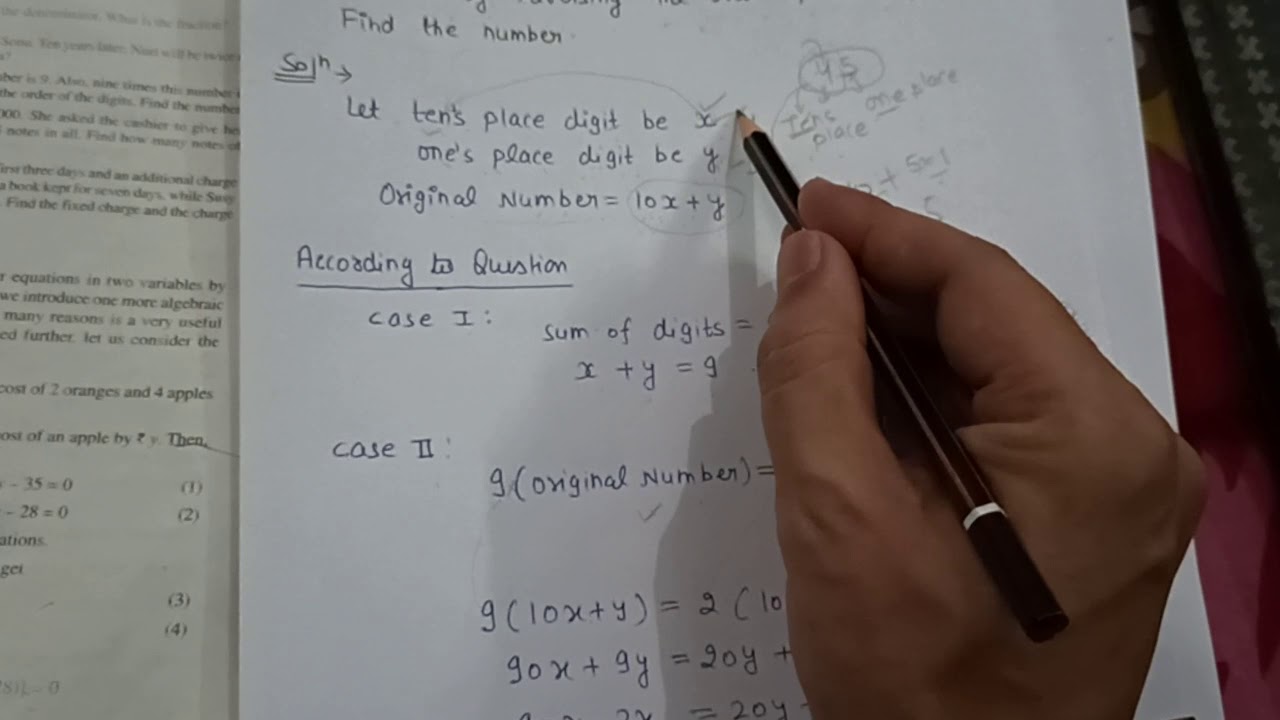 the denominator. What is the fraction?
Sonu. Ten years later, Nuri will be twice
ber is 9. Also, nine times this number
the order of the digits. Find the number
000. She asked the cashier to give her
notes in all. Find how many notes of
first three days and an additional charge
a book kept for seven days, while Susy
Find the fixed charge and the charge
r equations in two variables by
we introduce one more algebraic
many reasons is a very useful
ed further, let us consider the
cost of 2 oranges and 4 apples
ost of an apple by ₹ y. Then,
- 35 = 0 (1)
- 28 = 0 (2)
ations.
get
(3)
(4)
= 0
Find the number.
Solⁿ →
Let ten's place digit be x
one's place digit be y
Original Number = 10x + y
45
Tens place
one place
+ 5×1
5
According to Question
Case I :
Sum of digits =
x + y = 9
Case II :
9(original Number) =
9(10x+y) = 2(10
90x + 9y = 20y +
= 20y